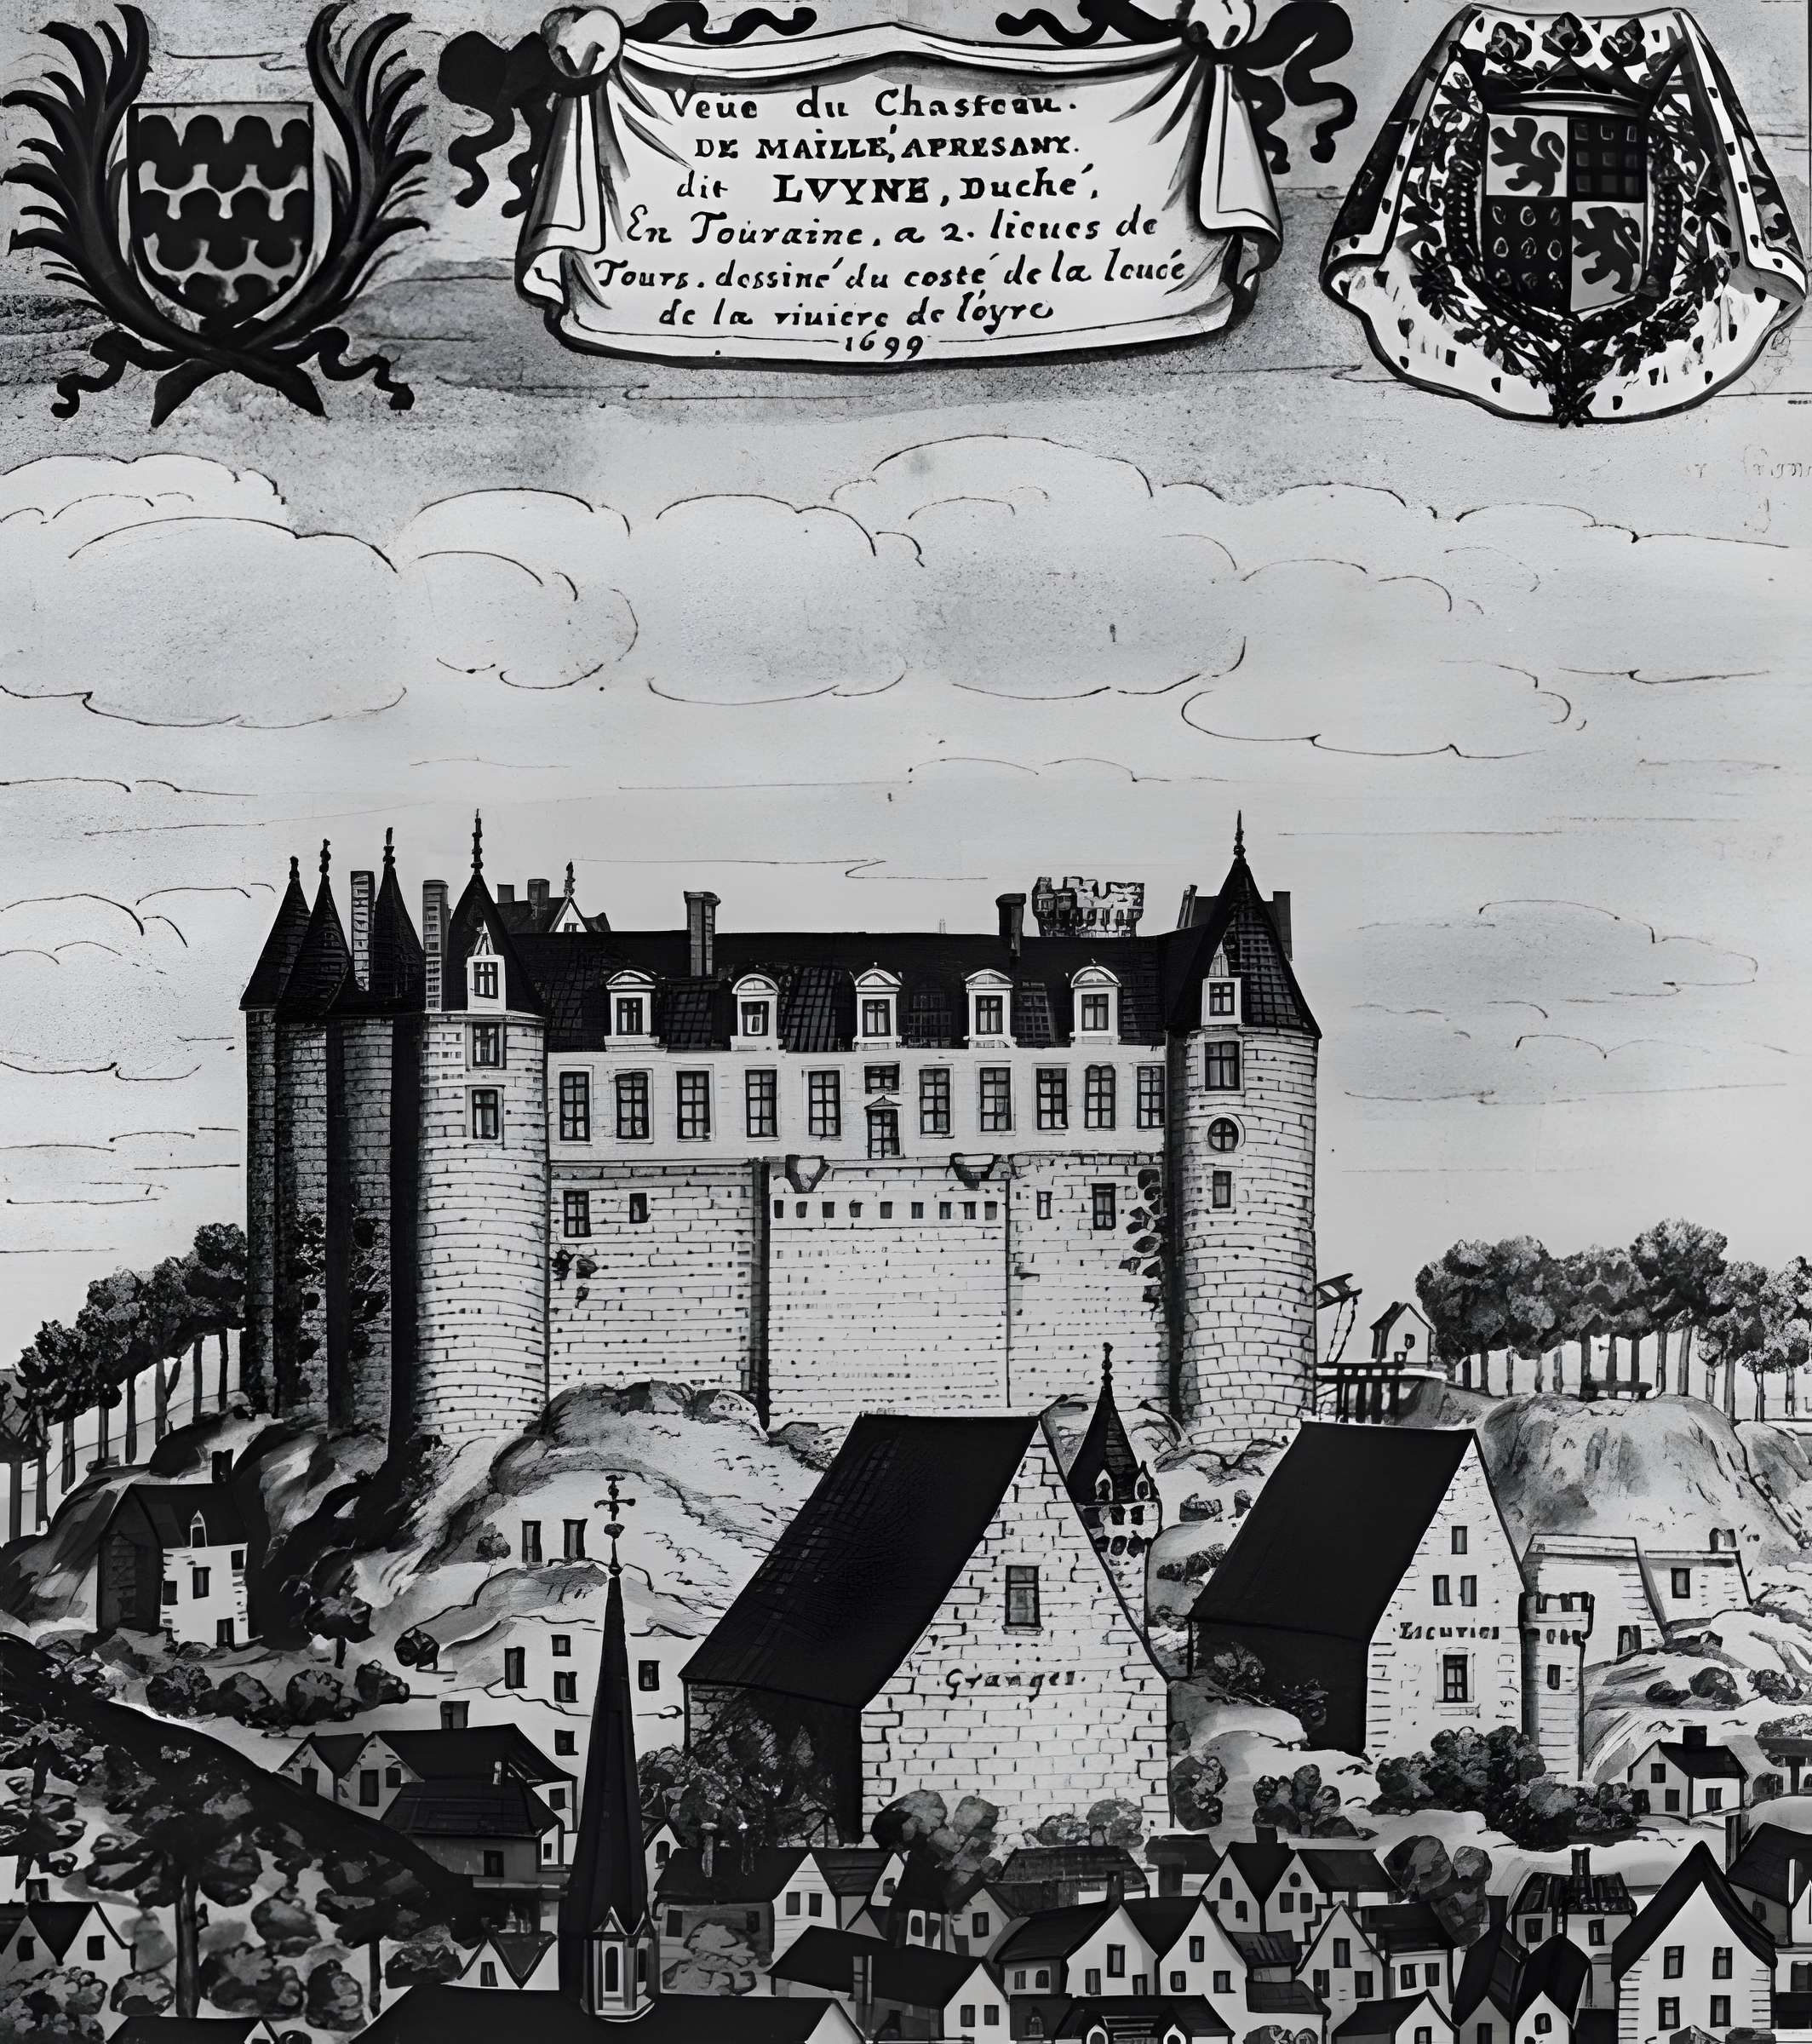 Veüe du Chasteau.
DE MAILLÉ, APRESANT.
dit LVYNE, Duché,
En Touraine, a 2. lieues de
Tours. dessiné du costé de la leueé
de la riuiere de loyre
1699
Granges.
Escuries